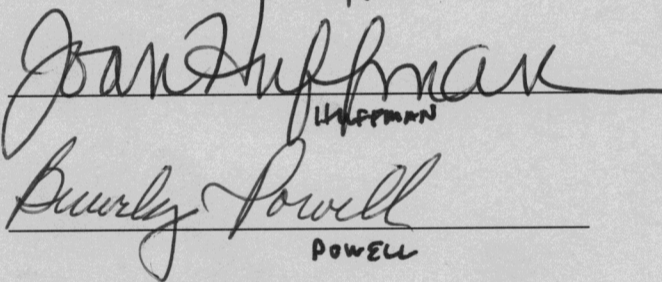 Joan Huffman
HUFFMAN
Beverly Powell
POWELL